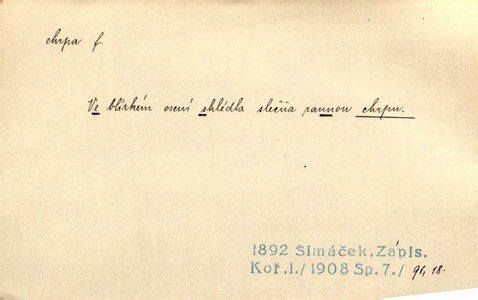 chrpa f.
Ve blízkém osení shlédla slečna rannou chrpu.
1892 Šimáček.Zápis.
Koř.1./1908 Sp.7./ 91, 18.